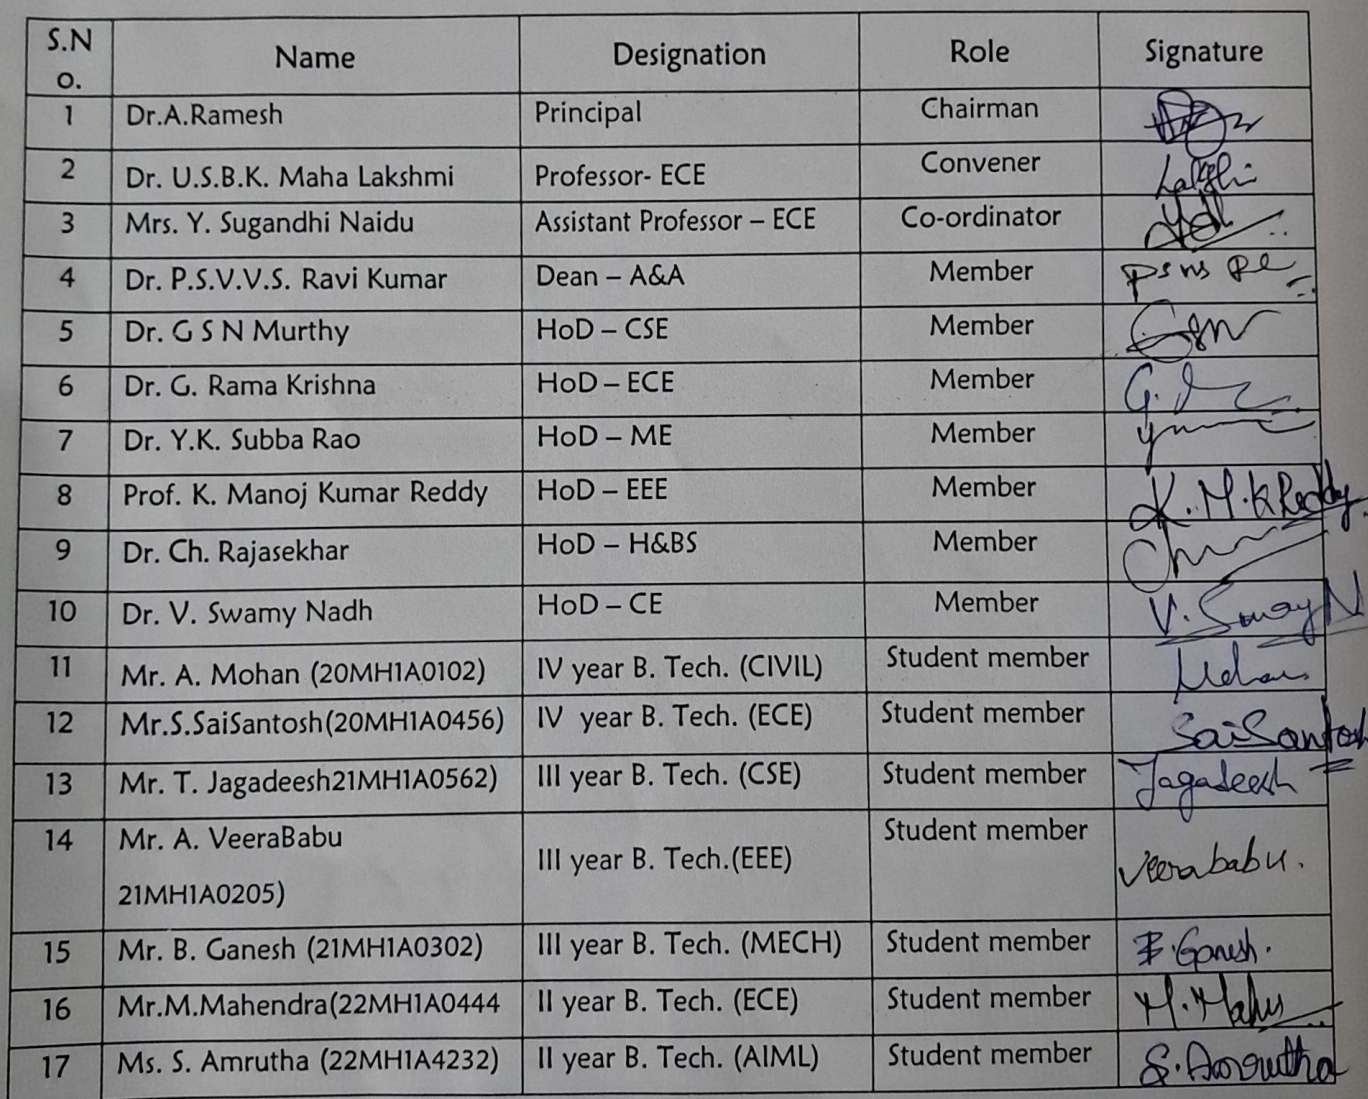 S.N
o. Name Designation Role Signature
1 Dr.A.Ramesh Principal Chairman
2 Dr. U.S.B.K. Maha Lakshmi Professor- ECE Convener
3 Mrs. Y. Sugandhi Naidu Assistant Professor – ECE Co-ordinator
4 Dr. P.S.V.V.S. Ravi Kumar Dean – A&A Member
5 Dr. G S N Murthy HoD – CSE Member
6 Dr. G. Rama Krishna HoD – ECE Member
7 Dr. Y.K. Subba Rao HoD – ME Member
8 Prof. K. Manoj Kumar Reddy HoD – EEE Member K.M.K Reddy
9 Dr. Ch. Rajasekhar HoD – H&BS Member
10 Dr. V. Swamy Nadh HoD – CE Member
11 Mr. A. Mohan (20MH1A0102) IV year B. Tech. (CIVIL) Student member
12 Mr.S.SaiSantosh(20MH1A0456) IV year B. Tech. (ECE) Student member SaiSantosh
13 Mr. T. Jagadeesh21MH1A0562) III year B. Tech. (CSE) Student member Jagadeesh
14 Mr. A. VeeraBabu III year B. Tech.(EEE) Student member Veerababu.
21MH1A0205)
15 Mr. B. Ganesh (21MH1A0302) III year B. Tech. (MECH) Student member B.Ganesh.
16 Mr.M.Mahendra(22MH1A0444 II year B. Tech. (ECE) Student member
17 Ms. S. Amrutha (22MH1A4232) II year B. Tech. (AIML) Student member S.Amrutha